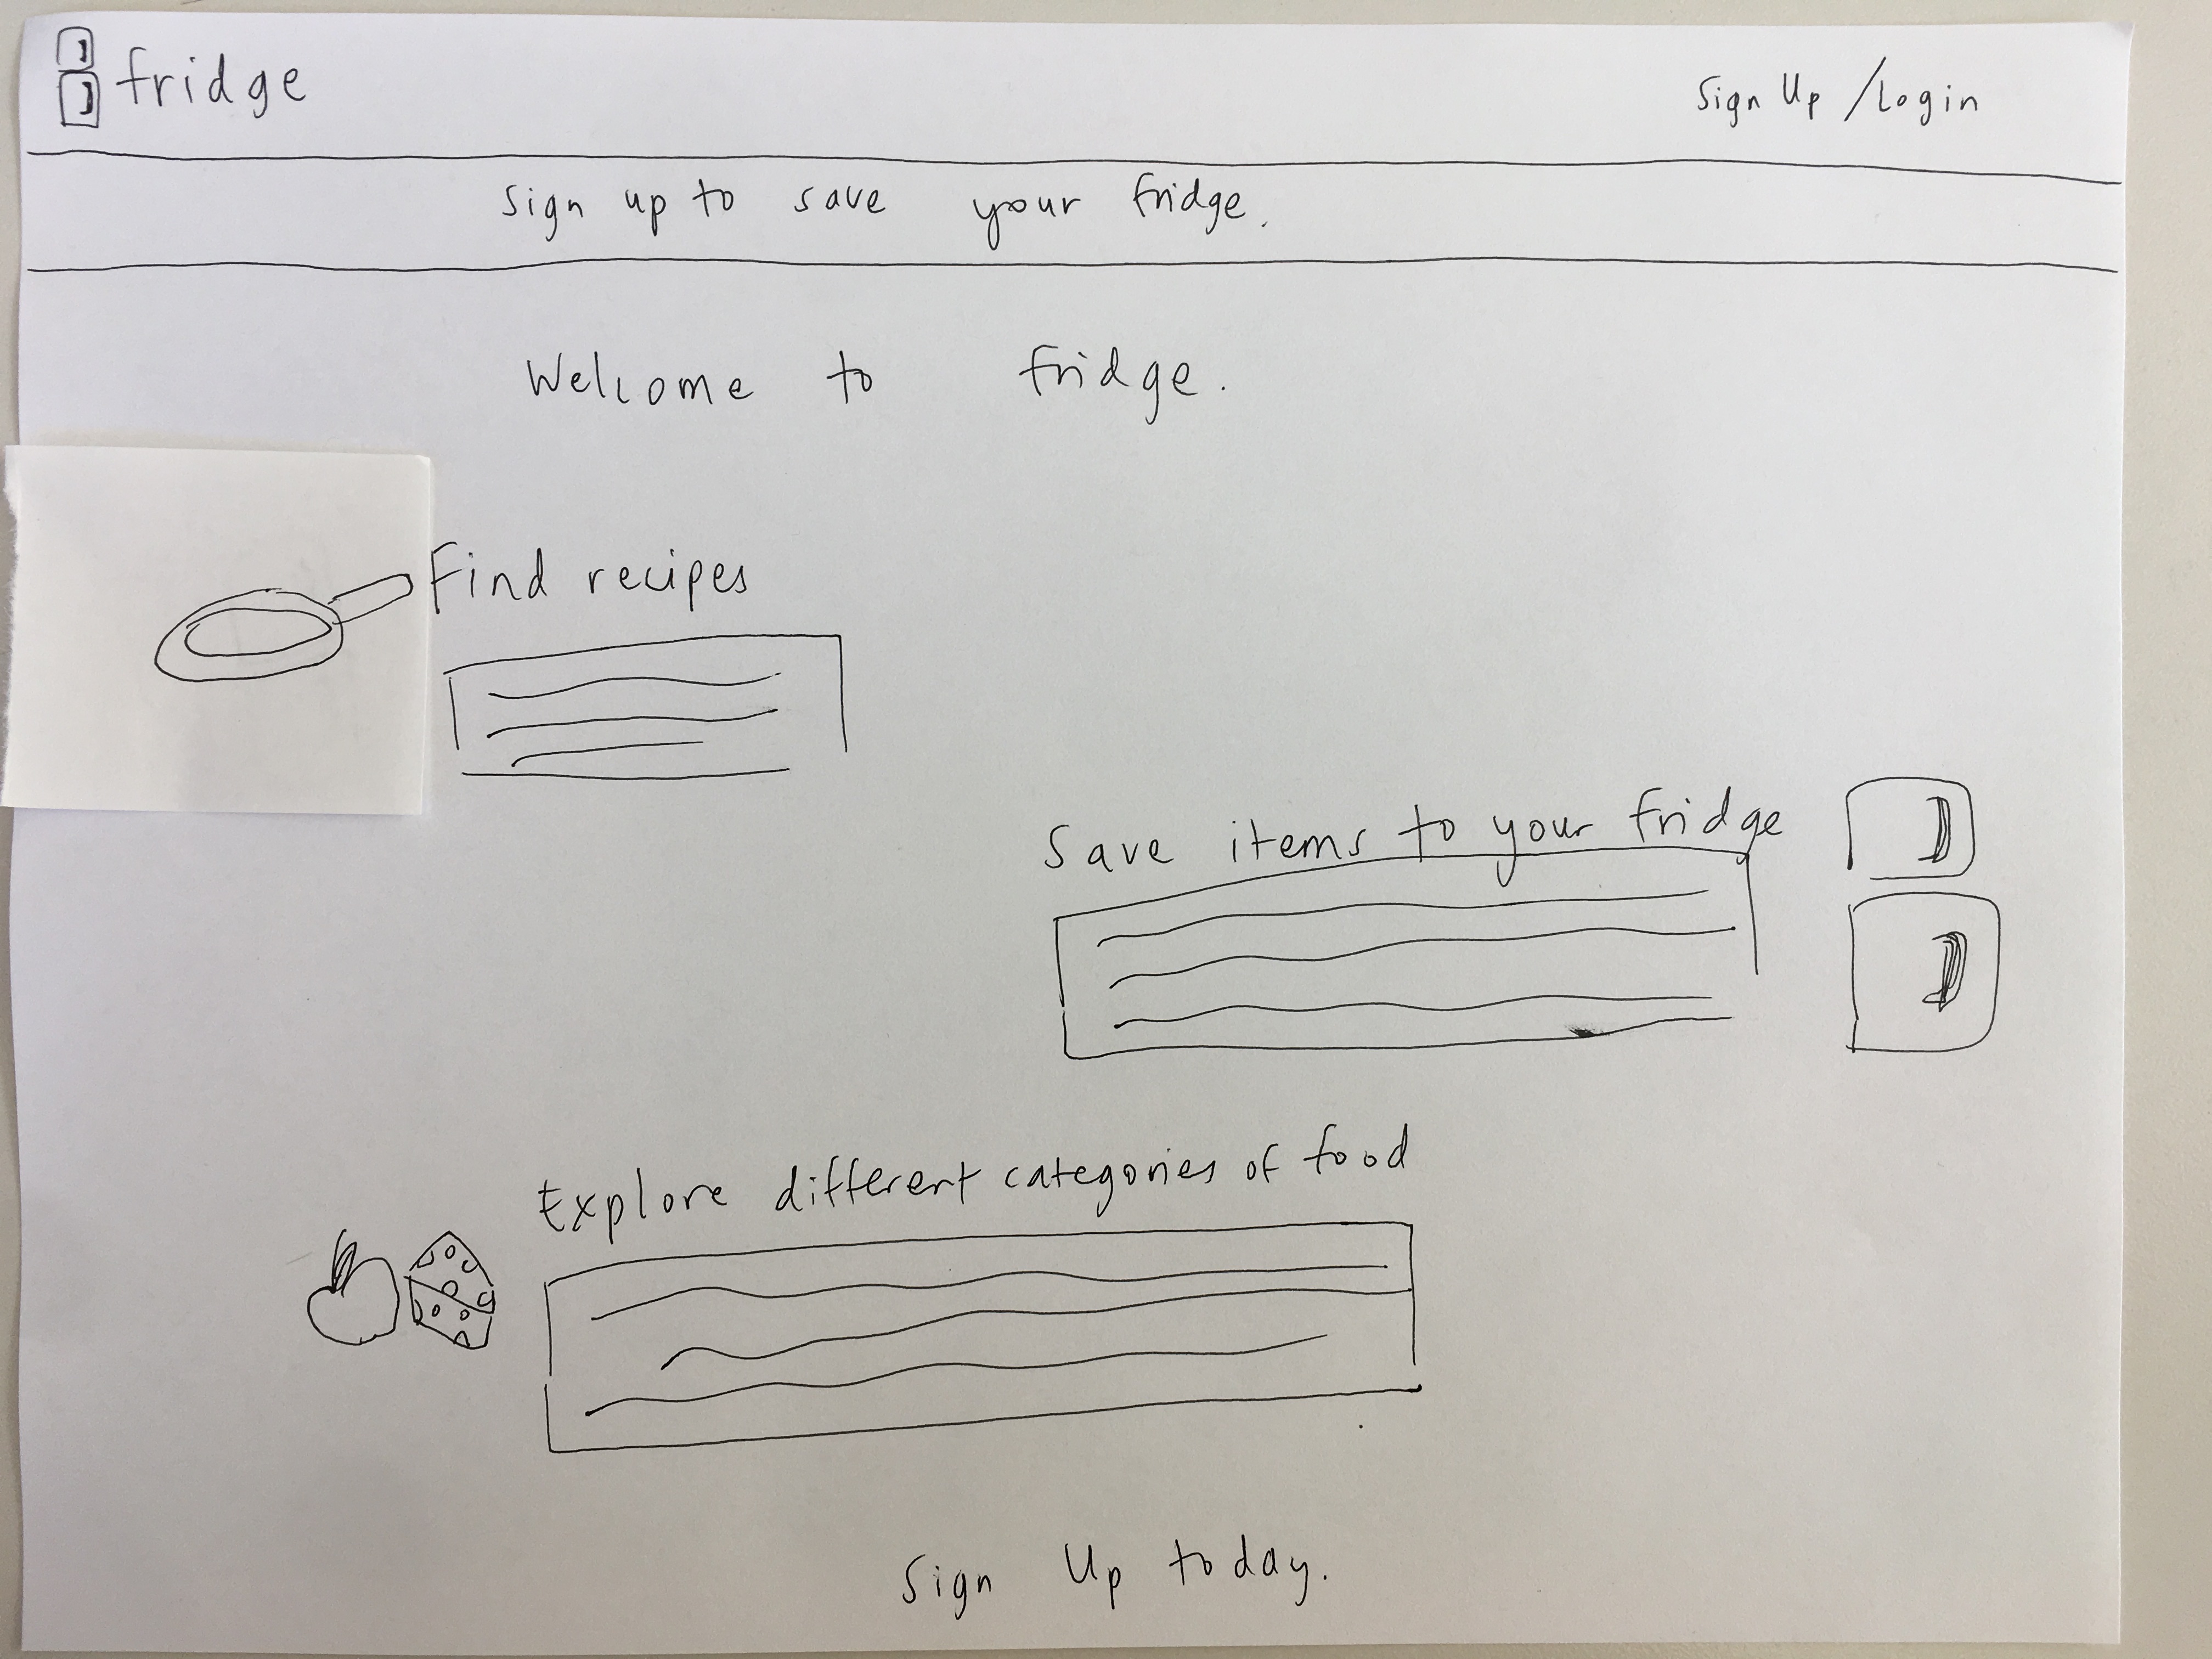 fridge
Sign Up / Login
Sign up to save your fridge.
Welcome to fridge.
Find recipes
Save items to your fridge
Explore different categories of food
Sign Up today.